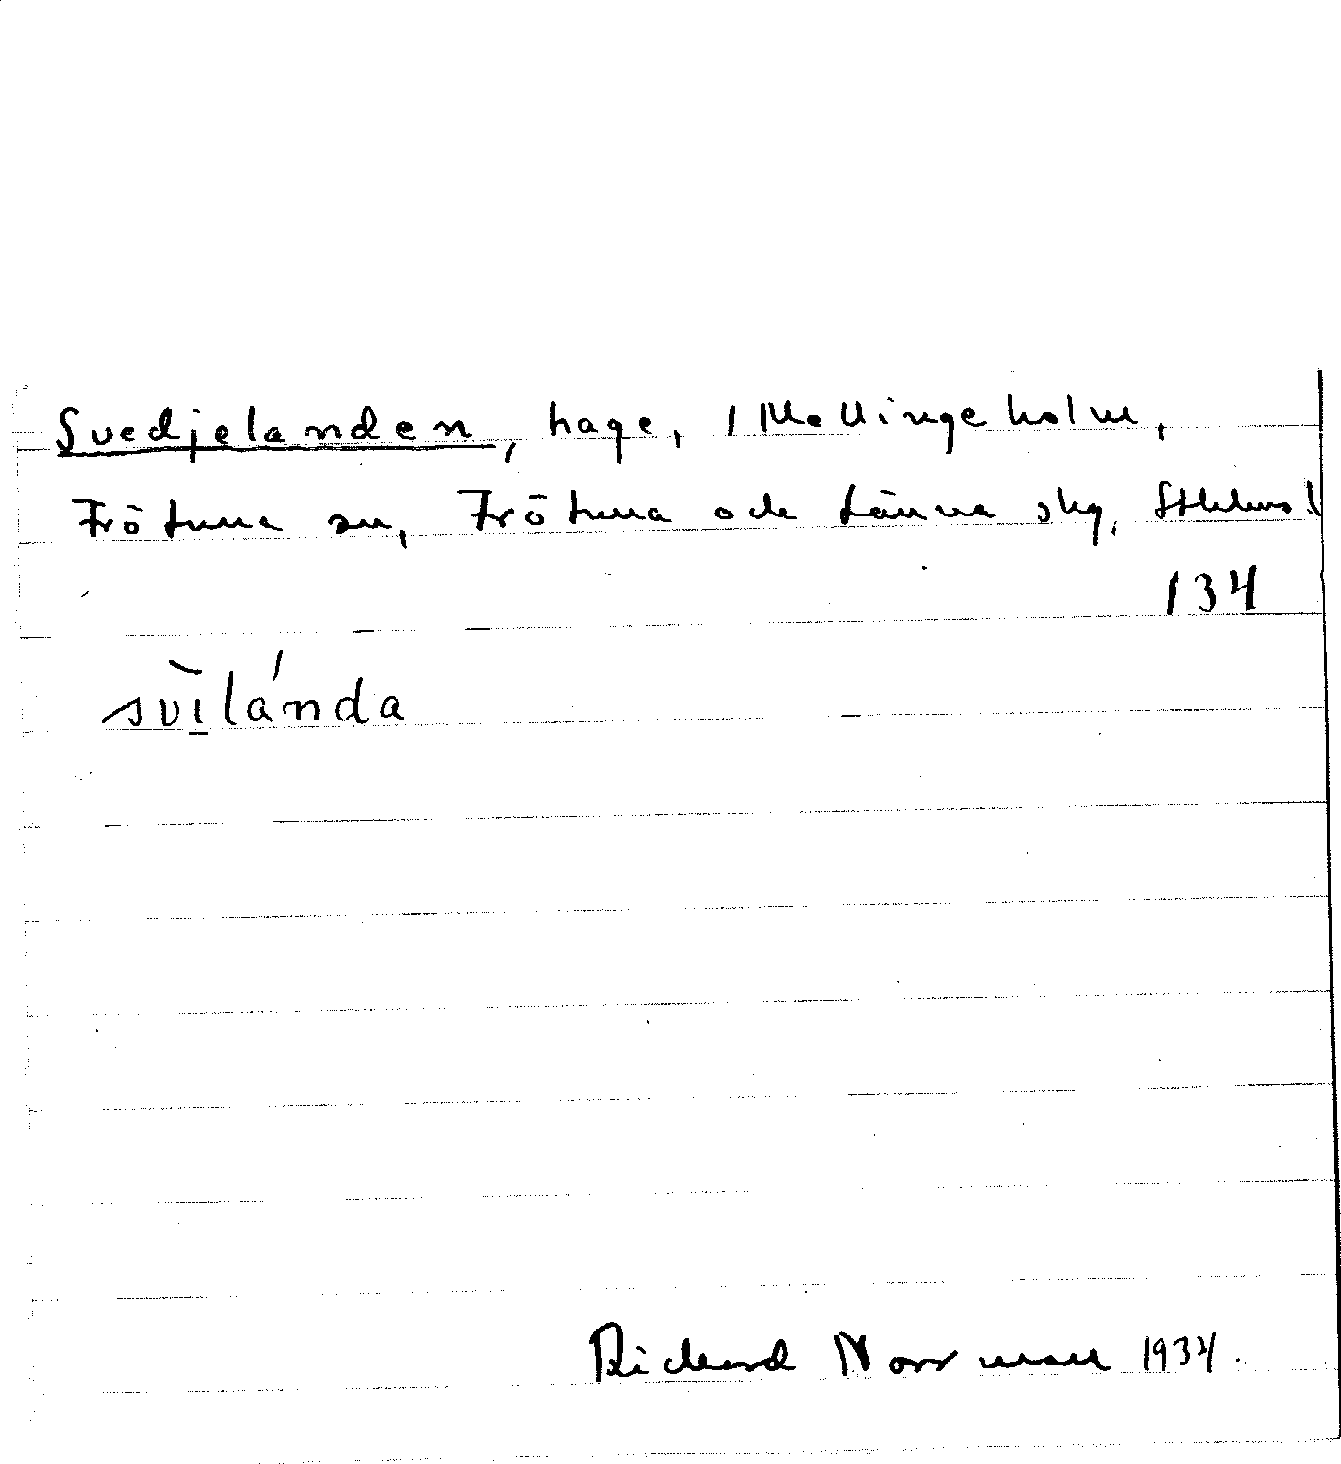 Svedjelanden, hage, 1 Mellingeholm,
Frötuna sn, Frötuna och Länna skg, Sthlms l
134
svì̱lánda
Richard Norrman 1934.